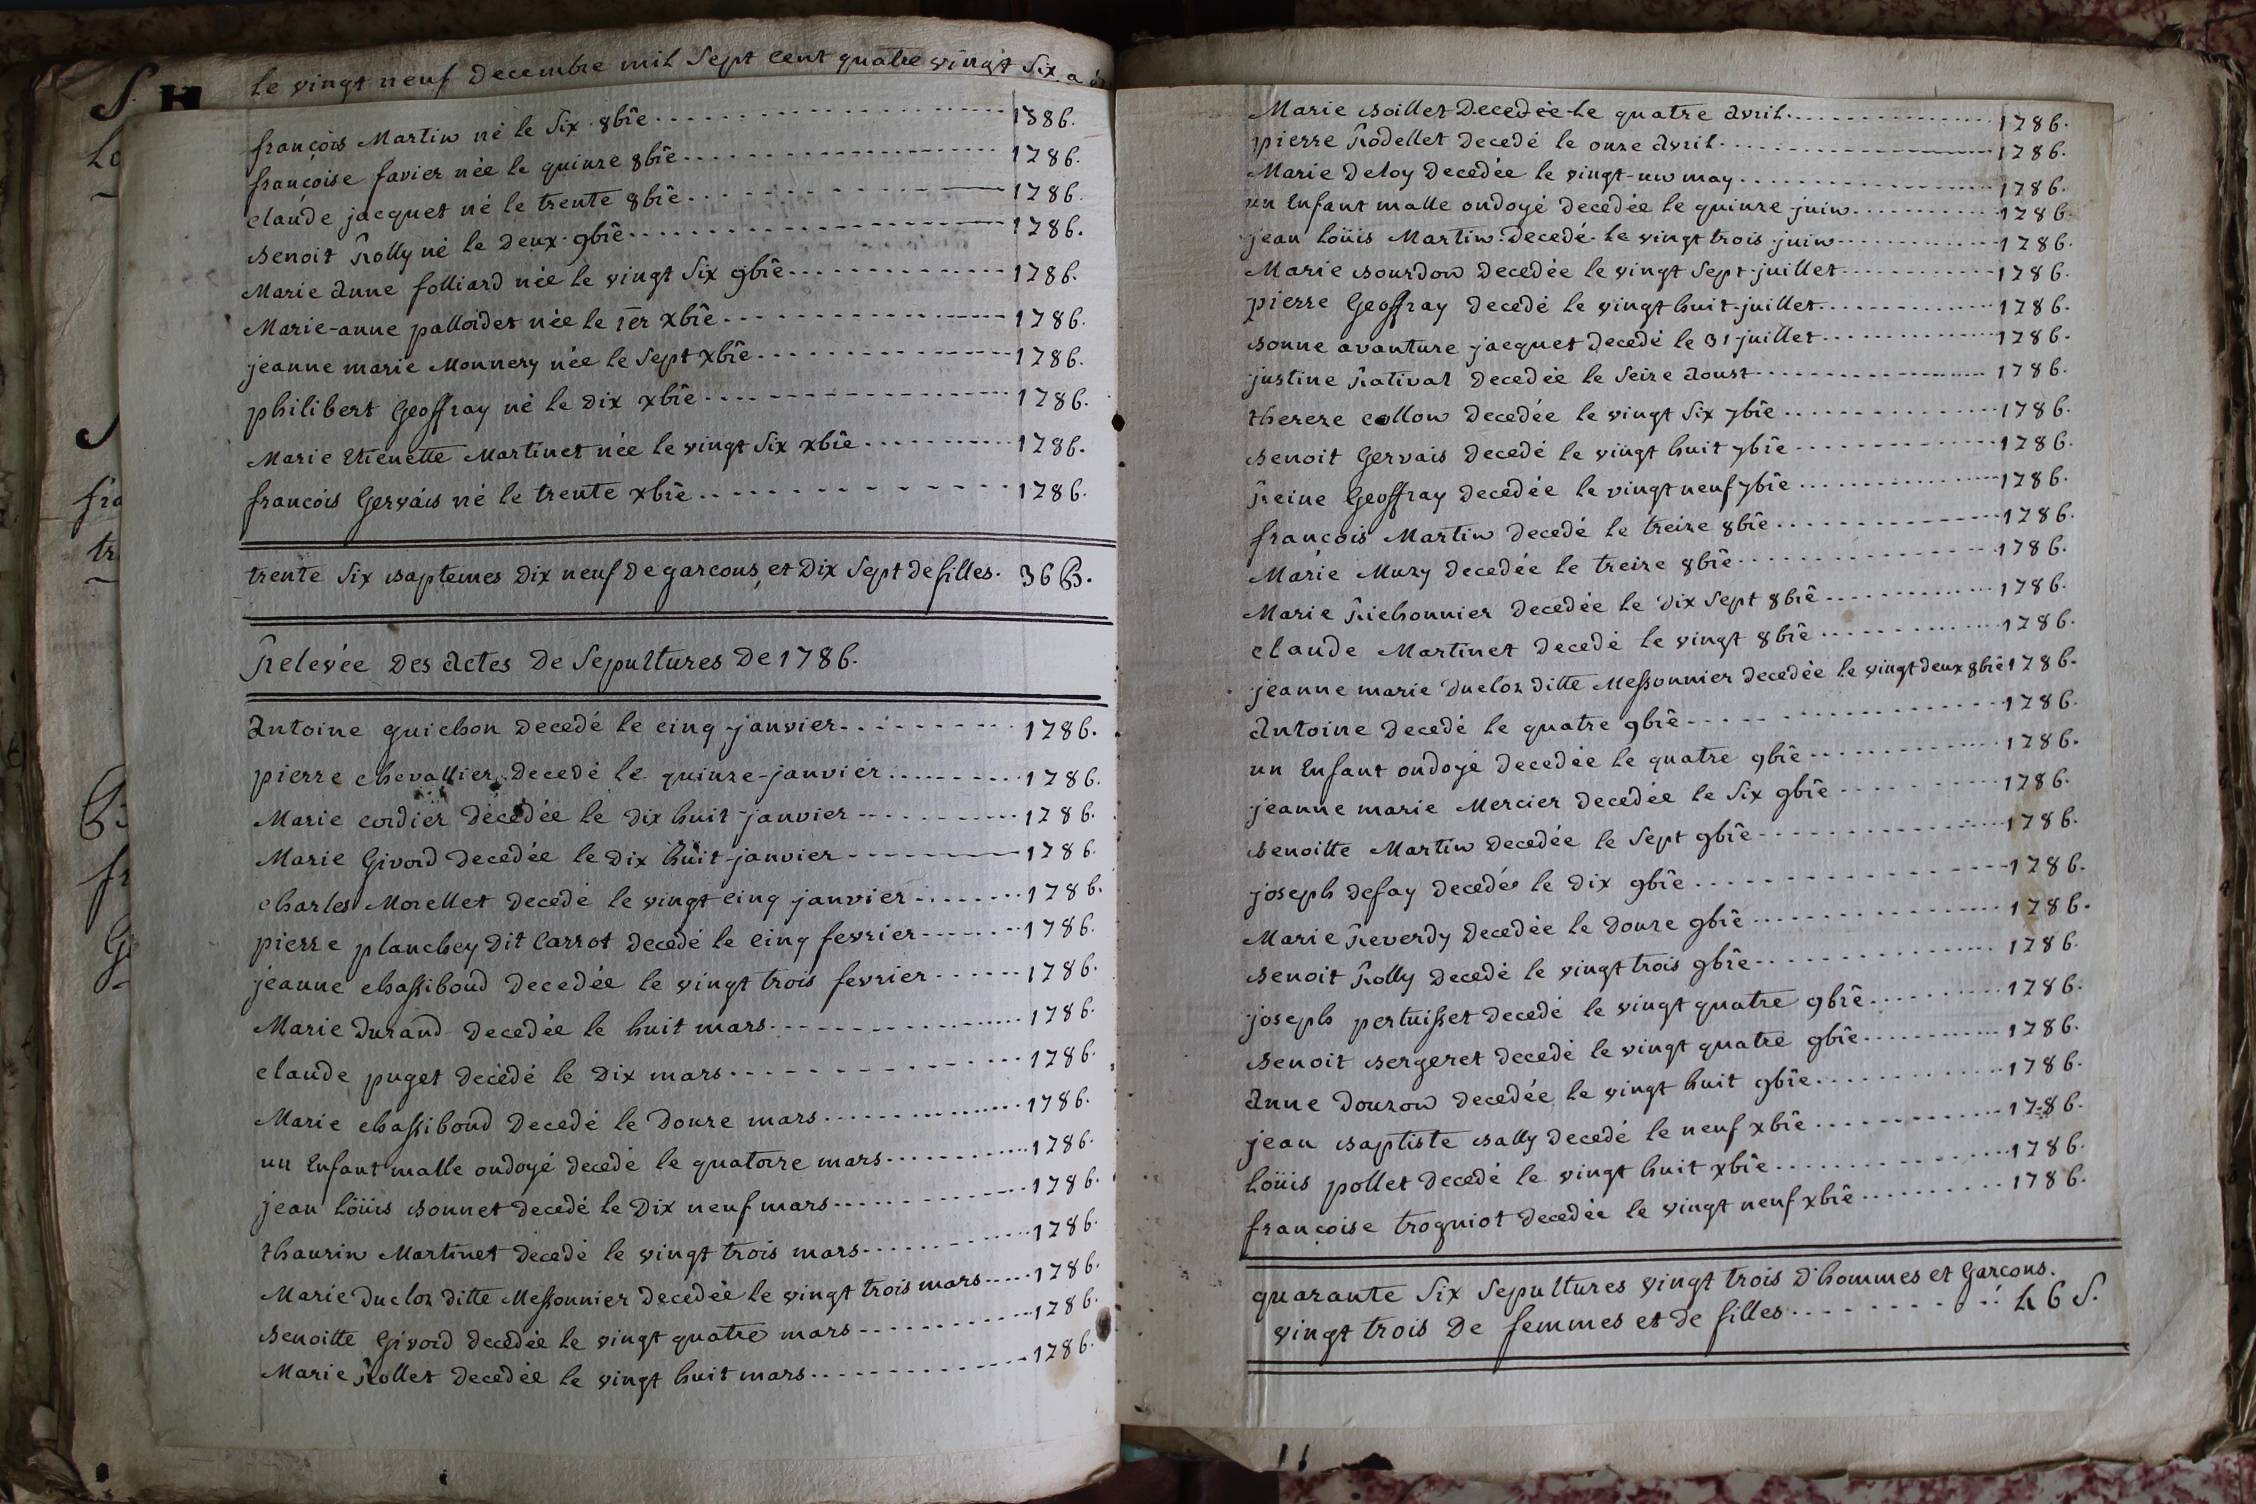 le vingt neuf Decembre mil Sept Cent quatre vingt Six a
françois Martin né le Six 8bre 1786.
françoise favier née le quinze 8bre 1786.
claude jacquet né le trente 8bre 1786.
Benoit Rolly né le Deux 9bre 1786.
Marie Anne folliard née le vingt Six 9bre 1786.
Marie-anne palloidet née le 1er xbre 1786.
jeanne marie Monnery née le Sept xbre 1786.
philibert Geoffray né le Dix xbre 1786.
Marie Etienette Martinet née le vingt Six xbre 1786.
françois Gervais né le trente xbre 1786.
trente Six Baptemes Dix neuf De garcons, et Dix Sept de filles. 36 B.
Relevée Des Actes De Sepultures De 1786.
Antoine guichon Decedé le cinq janvier 1786.
pierre chevallier Decedé le quinze janvier 1786.
Marie cordier Décédée le Dix huit janvier 1786.
Marie Givord Decedée le Dix huit janvier 1786.
charles Morellet Decedé le vingt cinq janvier 1786.
pierre planchey Dit Carrot Decedé le Cinq fevrier 1786.
jeanne chassiboud Decedée le vingt trois fevrier 1786.
Marie Durand Decedée le huit mars 1786.
claude puget Décédé le Dix mars 1786.
Marie chassiboud Decedé le Douze mars 1786.
un Enfant malle ondoyé decedé le quatorze mars 1786.
jean loüis Bonnet decedé le Dix neuf mars 1786.
thaurin Martinet decedé le vingt trois mars 1786.
Marie Ducloz ditte Messonnier Decedée le vingt trois mars 1786.
Benoitte Givord decedée le vingt quatre mars 1786.
Marie Rollet Decedée le vingt huit mars 1786.
Marie Boillet Decedée le quatre Avril 1786.
pierre Rodellet Decedé le onze Avril 1786.
Marie Deloy Decedée le vingt-un may 1786.
un Enfant malle ondoyé Decedée le quinze juin 1786.
jean loüis Martin Decedé le vingt trois juin 1786.
Marie Bourdon Decedée le vingt Sept juillet 1786.
pierre Geoffray decedé le vingt huit juillet 1786.
Bonne avanture jacquet Decedé le 31 juillet 1786.
justine Rativat Decedée le Seize Aoust 1786.
thereze collon Decedée le vingt Six 7bre 1786.
Benoit Gervais Decedé le vingt huit 7bre 1786.
Reine Geoffray Decedée le vingt neuf 7bre 1786.
françois Martin decedé le treize 8bre 1786.
Marie Muzy Decedée le treize 8bre 1786.
Marie Richonnier Decedée le Dix Sept 8bre 1786.
claude Martinet Decedé le vingt 8bre 1786.
jeanne marie Ducloz ditte Messonnier decedée le vingt deux 8bre 1786.
Antoine Decedé le quatre 9bre 1786.
un Enfant ondoyé Decedée le quatre 9bre 1786.
jeanne marie Mercier Decedée le Six 9bre 1786.
Benoitte Martin Decedée le Sept 9bre 1786.
joseph Defay Decedé le Dix 9bre 1786.
Marie Reverdy Decedée le Douze 9bre 1786.
Benoit Rolly Decedé le vingt trois 9bre 1786.
joseph pertuisset Decedé le vingt quatre 9bre 1786.
Benoit Bergeret decedé le vingt quatre 9bre 1786.
Anne Douzon Decedée le vingt huit 9bre 1786.
jean Baptiste Bally decedé le neuf xbre 1786.
loüis pollet Decedé le vingt huit xbre 1786.
françoise troguiot Decedée le vingt neuf xbre 1786.
quarante Six Sepultures vingt trois D'hommes et Garcons.
vingt trois De femmes et de filles 46 S.